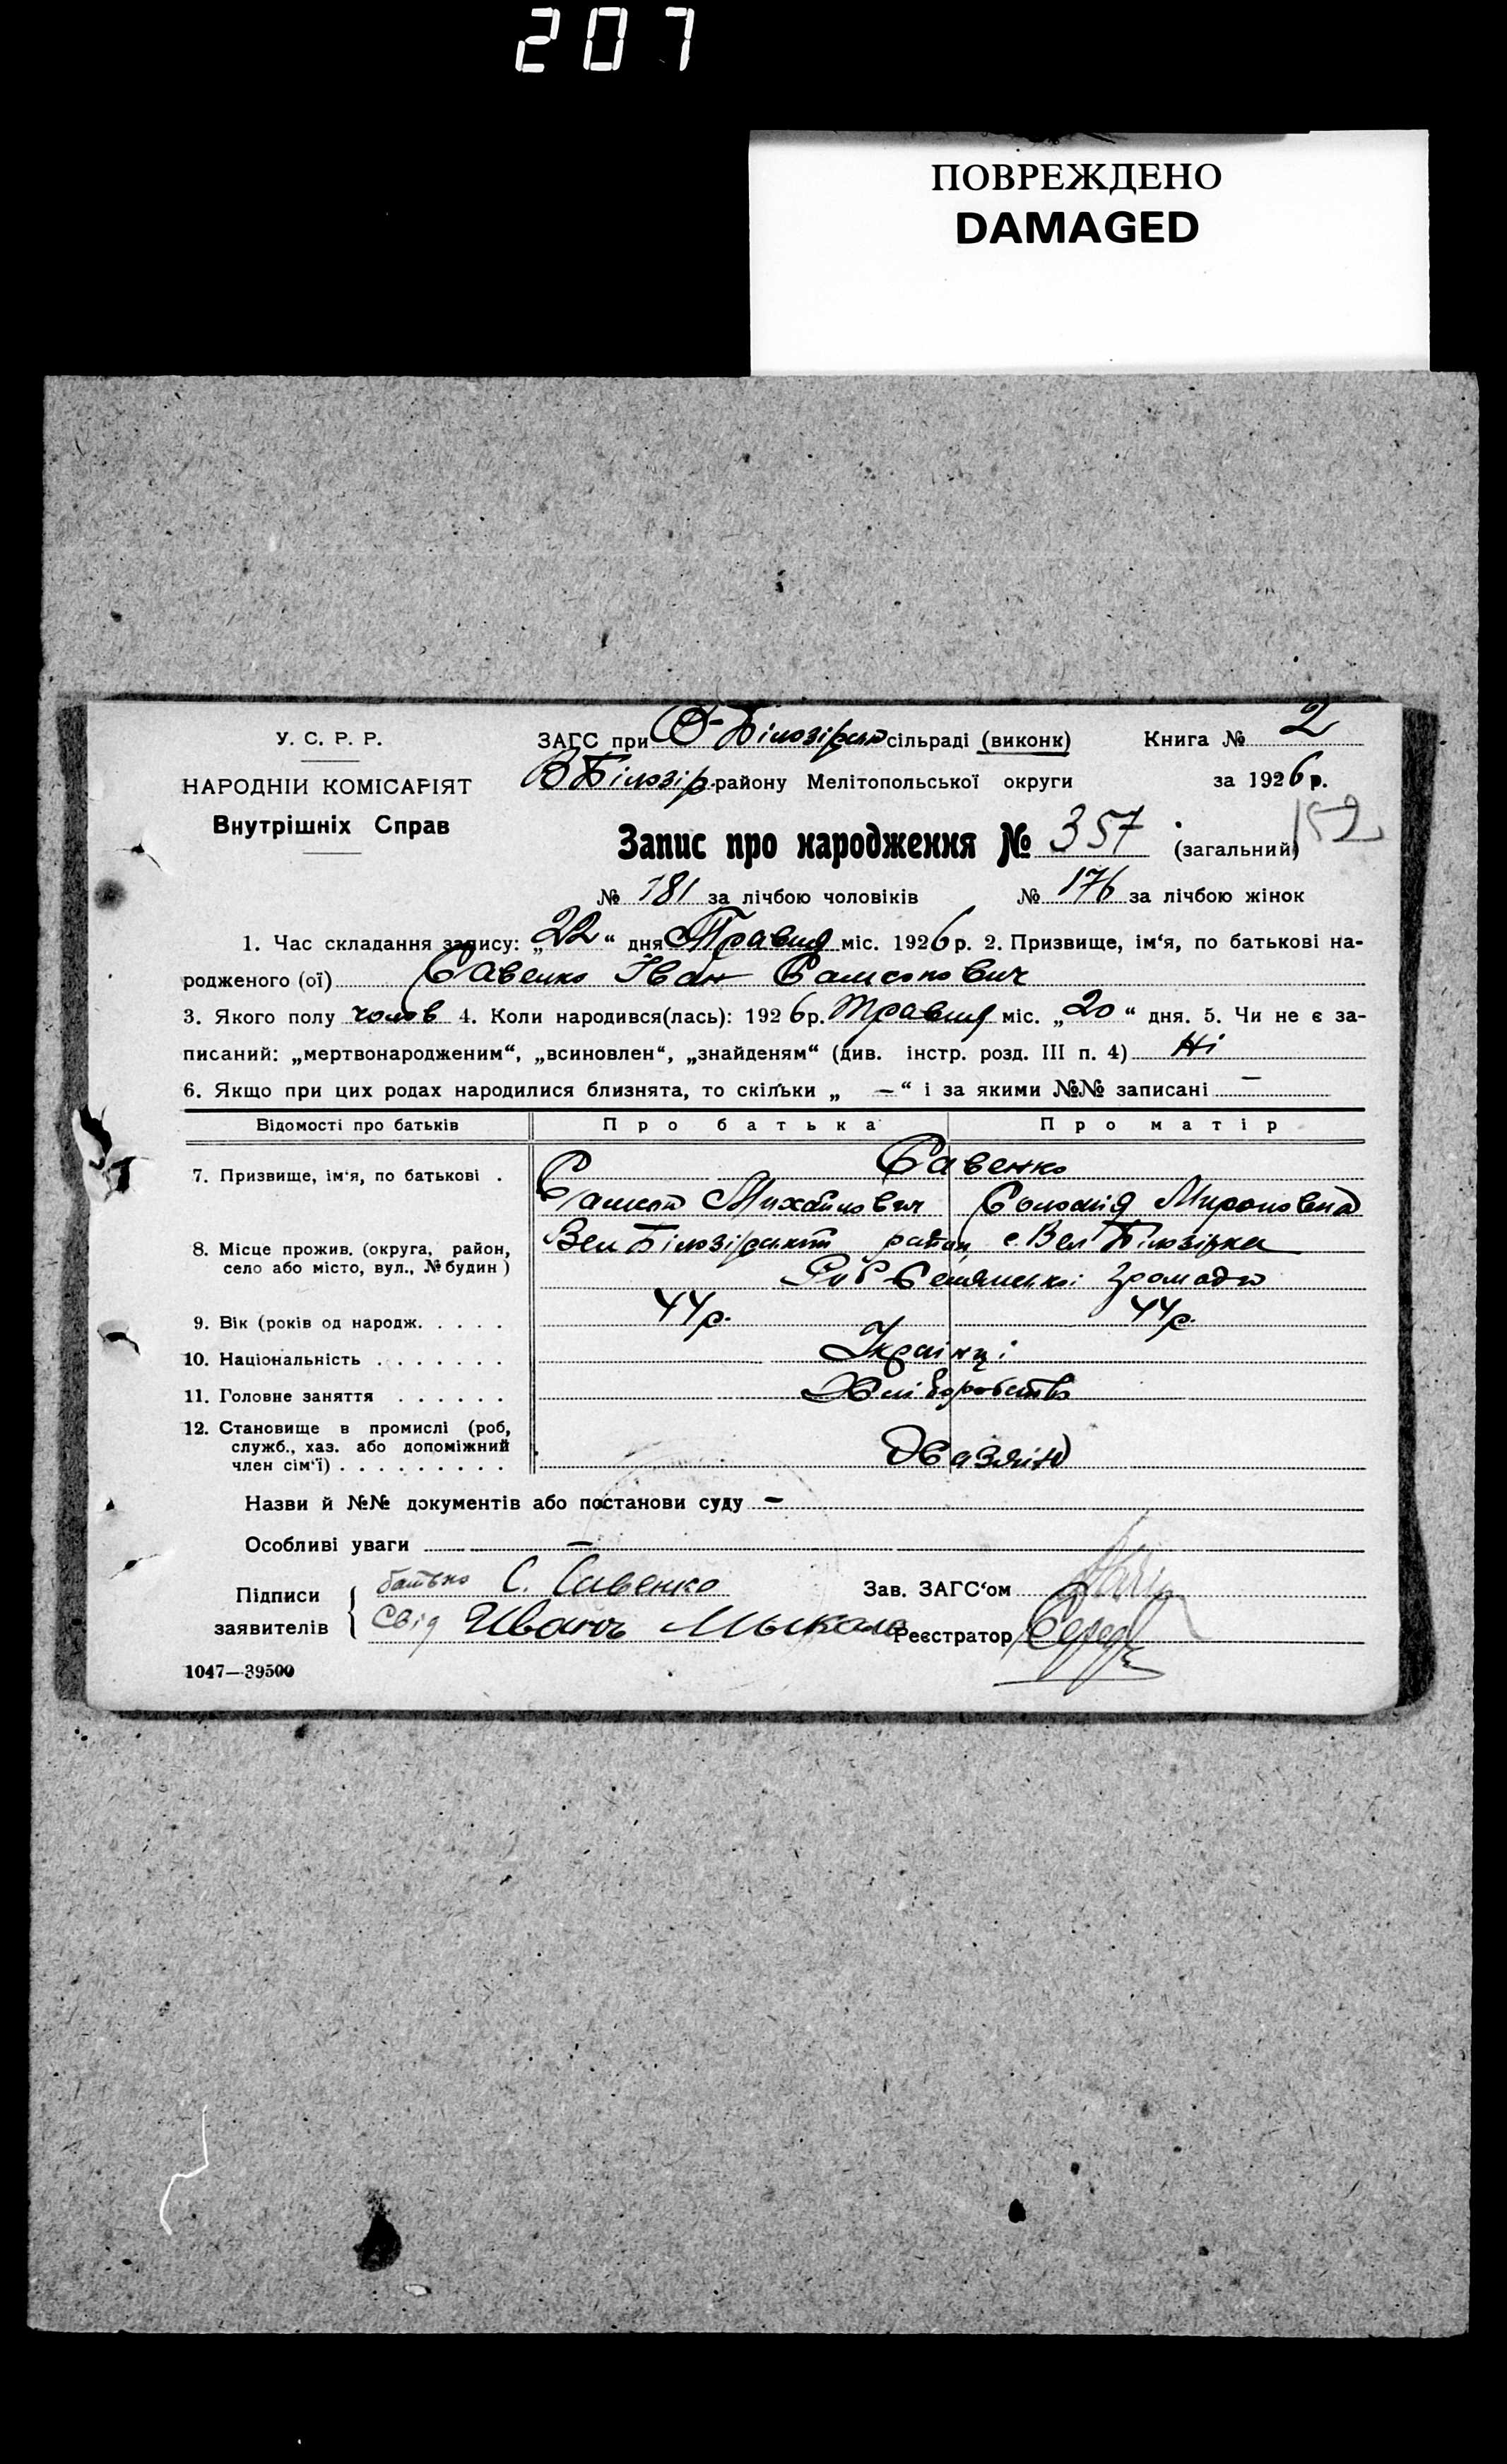 207
ПОВРЕЖДЕНО
DAMAGED
У. С. Р. Р.
НАРОДНІЙ КОМІСАРІЯТ
Внутрішніх Справ
ЗАГС при В-Білозірськ сільраді (виконк) Книга № 2
В Білозір. району Мелітопольської округи за 1926 р.
Запис про народження № 357 (загальний) 152
№ 181 за лічбою чоловіків № 176 за лічбою жінок
1. Час складання запису: „22“ дня Травня міс. 1926 р. 2. Призвище, ім‘я, по батькові на-
родженого (ої) Савенко Іван Самсонович
3. Якого полу чолов 4. Коли народився(лась): 1926 р. Травня міс. „20“ дня. 5. Чи не є за-
писаний: „мертвонародженим“, „всиновлен“, „знайденям“ (див. інстр. розд. III п. 4) Ні
6. Якщо при цих родах народилися близнята, то скільки „ — “ і за якими №№ записані —
Відомості про батьків Про батька Про матір
7. Призвище, ім‘я, по батькові . Савенко
Самсон Михайлович Соломія Мироновна
8. Місце прожив. (округа, район, село або місто, вул., № будин) Вел Білозірський район с. Вел Білозірка
громади
9. Вік (років од народж. . . . . 44 р. 44 р.
10. Національність . . . . . . . Українці
11. Головне заняття . . . . . . Хліборобство
12. Становище в промислі (роб,
служб., хаз. або допоміжний
член сім‘ї) . . . . . . . . . Хазяїн
Назви й №№ документів або постанови суду —
Особливі уваги —
Підписи заявителів { батько С. Савенко Зав. ЗАГС‘ом
Свід Иванъ Мыкало Реєстратор
1047—39500